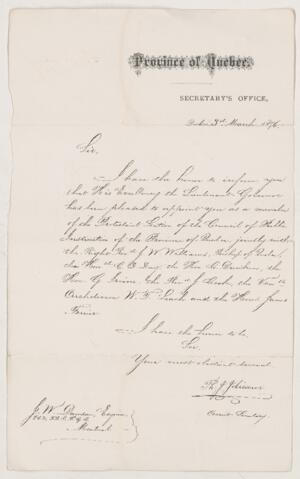 Province of Quebec.
SECRETARY'S OFFICE,
Quebec 3rd March 1876.
Sir,
I have the honor to inform you
that His Excellency the Lieutenant Governor
has been pleased to appoint you as a member
of the Protestant Section of the Council of Public
Instruction of the Province of Quebec, jointly with
the Right Revd J. W. Williams, Bishop of Quebec,
the Hon. C. D. Day, the Hon. C. Dunkin, the
Hon. G. Irvine, the Revd J. Cook, the Ven.
Archdeacon W. T. Leach and the Hond James
Ferrier
I have the honor to be
Sir,
Your most obedient servant
Secretary
J. W. Dawson, Esquire
Montreal